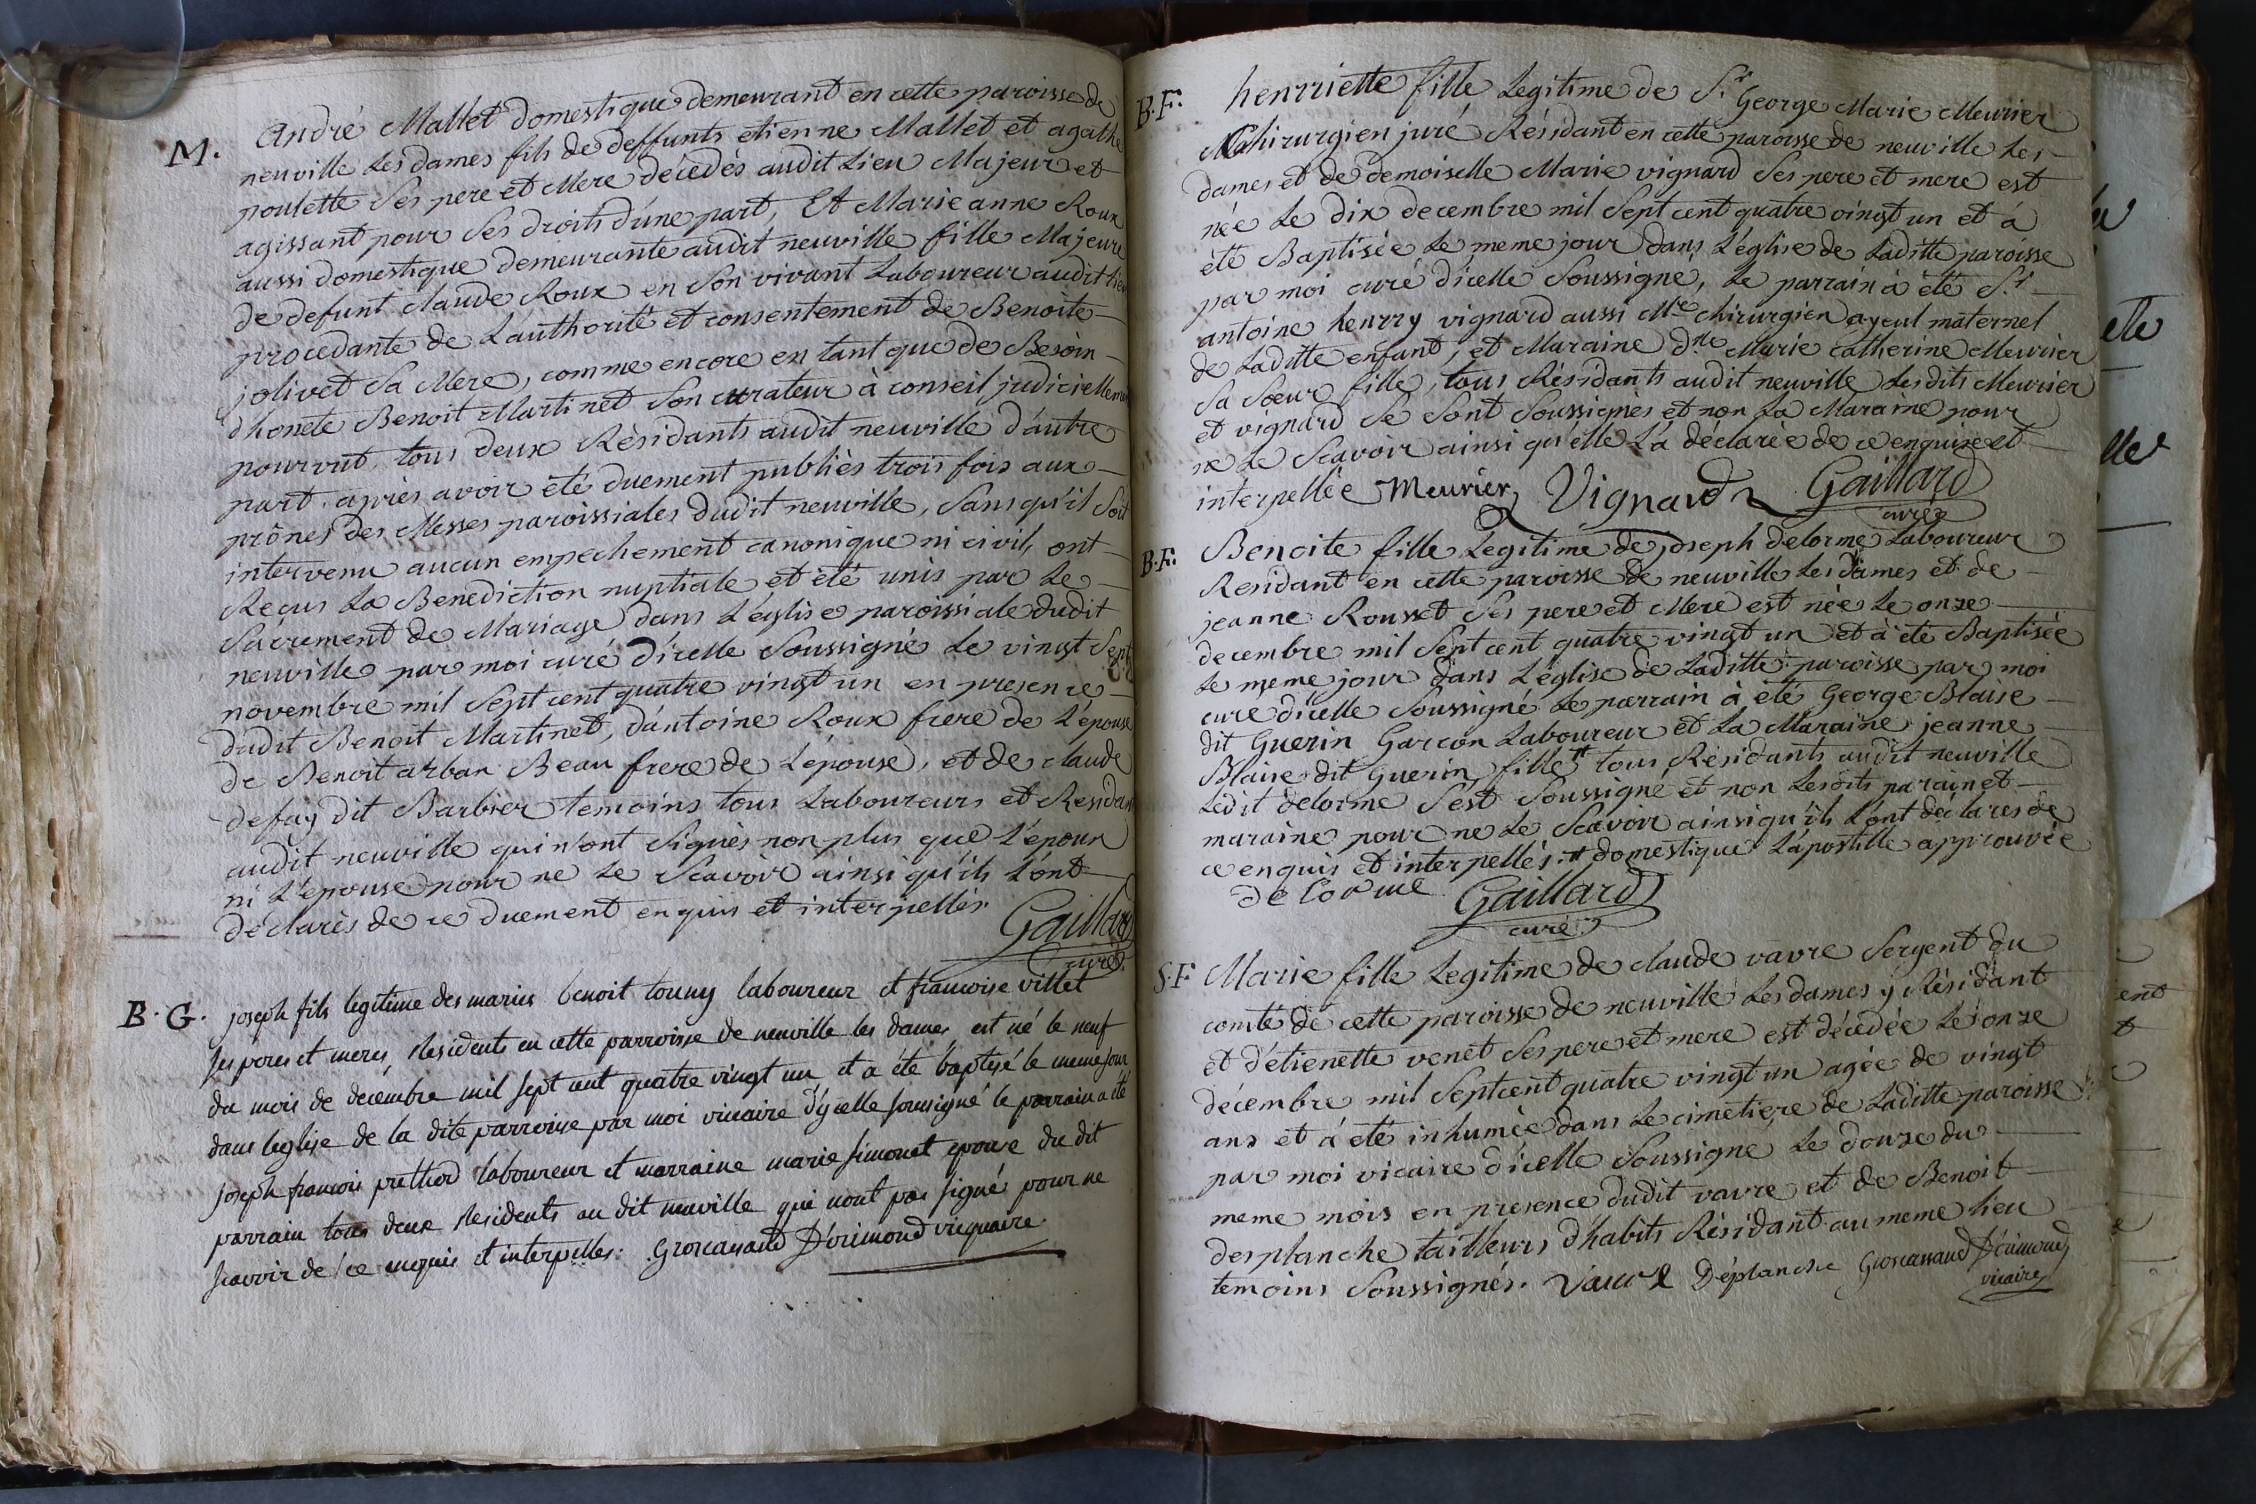 M.
André Mallet domestique demeurant en cette paroisse de
neuville Les dames fils de deffunts etienne Mallet et agathe
poulette Ses pere et Mere décédés audit Lieu Majeur et
agissant pour Ses droits d'une part, Et Marie anne Roux
aussi domestique demeurante audit neuville fille Majeure
de defunt claude Roux en Son vivant Laboureur audit lieu
procedante de L'authorité et consentement de Benoite
jolivet Sa Mere, comme encore en tant que de Besoin
d'honete Benoit Martinet Son curateur à conseil judiciellement
pourvut, tous deux Résidants audit neuville d'autre
part. après avoir été duement publiés trois fois aux
prônes des Messes paroissiales dudit neuville, Sans qu'il Soit
intervenu aucun empechement canonique ni civil, ont
Recus La Benediction nuptiale et été unis par Le
Sacrement de Mariage dans L'église paroissiale dudit
neuville par moi curé d'icelle Soussigné Le vingt Sept
novembre mil Sept cent quatre vingt un en presence
dudit Benoit Martinet, d'antoine Roux frere de L'épouse
de Benoit arban Beau frere de L'épouse, et de claude
defay dit Barbier temoins tous Laboureurs et Residants
audit neuville qui n'ont Signés non plus que L'époux
ni L'épouse pour ne Le Scavoir ainsi qu'ils L'ont
déclarés de ce duement enquis et interpellés.
Gaillard
curé
B. G.
joseph fils legitime des mariés benoit touny laboureur et francoise villet
ses peres et meres Residents en cette parroisse de neuville les dames est né le neuf
du mois de decembre mil sept cent quatre vingt un et a été baptisé le meme jour
dans leglise de la dite parroisse par moi vicaire d'ycelle soussigné le parrain a été
joseph francois laboureur et marraine marie simonet epouse du dit
parrain tous deux Residents au dit neuville qui nont pas signés pour ne
scavoir de ce enquis et interpelles: Groscassand D'orimond vicquaire
B. F.
henrriette fille Legitime de Sr George Marie Meurier
Chirurgien juré Résidant en cette paroisse de neuville Les
dames et de demoiselle Marie vignard Ses pere et mere est
née Le dix decembre mil Sept cent quatre vingt un et à
été Baptisée Le meme jour dans L'église de Laditte paroisse
par moi curé d'icelle Soussigné, Le parrain à été Sr
antoine henrry vignard aussi Mtre chirurgien ayeul maternel
de Laditte enfant, et Maraine Dlle Marie catherine Meurier
Sa Sœur fille, tous Résidants audit neuville Lesdits Meurier
et vignard Se Sont Soussignés et non La Maraine pour
ne Le Scavoir ainsi qu'elle L'a déclarée de ce enquise et
interpellée Meurier Vignard Gaillard
curé
B. F.
Benoite fille Legitime de joseph delorme Laboureur
Residant en cette paroisse de neuville Les dames et de
jeanne Rousset Ses pere et Mere est née Le onze
decembre mil Sept cent quatre vingt un et à été Baptisée
Le meme jour dans L'église de Laditte paroisse par moi
curé d'icelle Soussigné Le parrain à été George Blaise
dit Guerin Garcon Laboureur et La Maraine jeanne
Blaise dit Guerin fille # tous Résidants audit neuville
Ledit delorme S'est Soussigné et non Lesdits parain et
maraine pour ne Le Scavoir ainsi qu'ils L'ont déclarés de
ce enquis et interpellés. # domestique L'apostille approuvée
delorme Gaillard
curé
S. F
Marie fille Legitime de claude vavre Sergent du
comté de cette paroisse de neuville Les dames y Résidant
et d'etienette venet Ses pere et mere est décédée Le onze
décembre mil Septcent quatre vingt un agée de vingt
ans et à été inhumée dans Le cimetiere de Laditte paroisse
par moi vicaire d'icelle Soussigné Le douze du
meme mois en presence dudit vavre et de Benoit
desplanche tailleurs d'habits Résidant au meme lieu
temoins Soussignés. Vavre Déplanche Groscassand D'orimond
vicaire